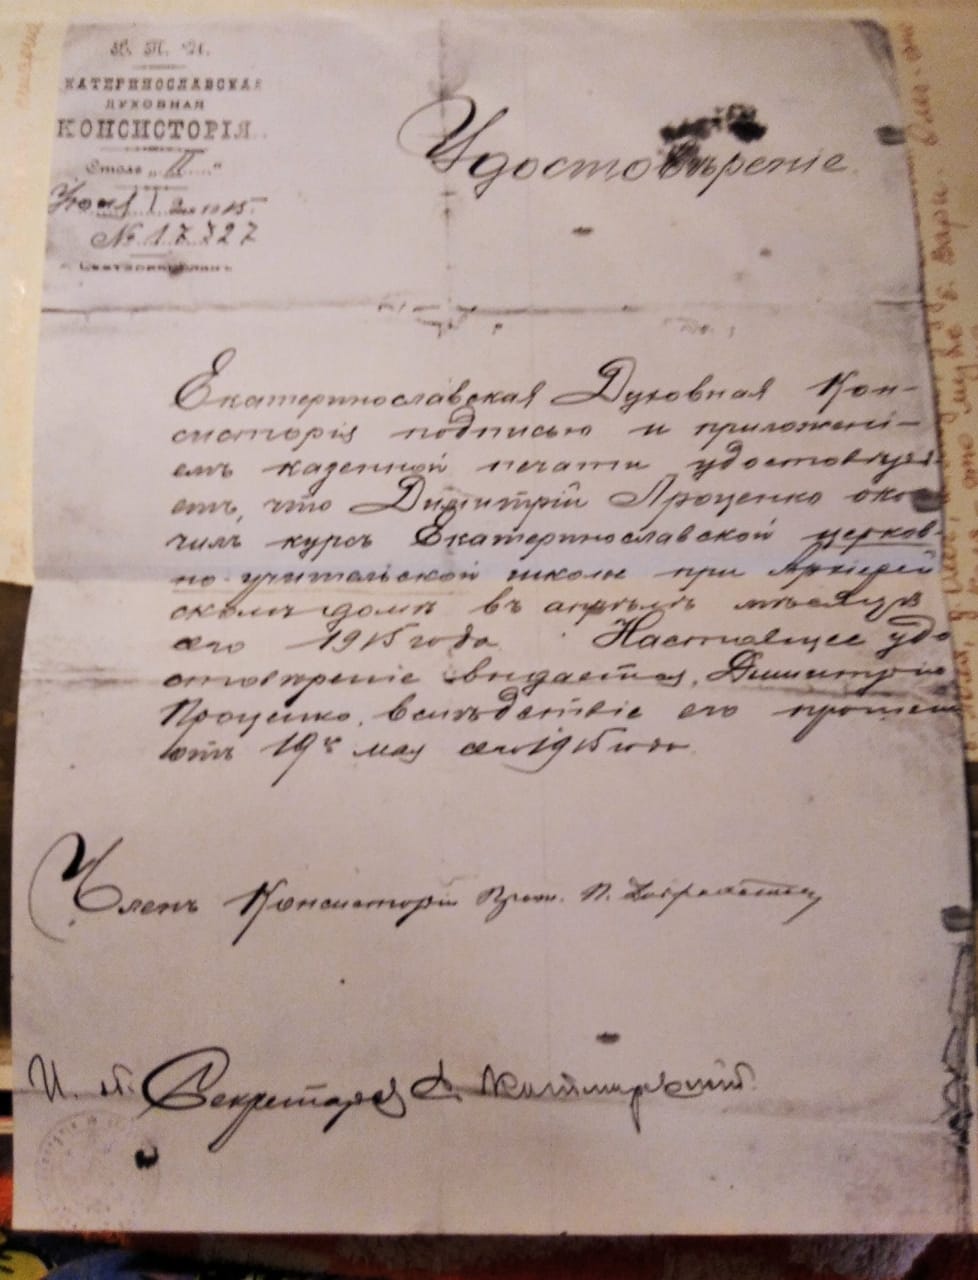 В. П. И.
ЕКАТЕРИНОСЛАВСКАЯ
ДУХОВНАЯ
КОНСИСТОРІЯ.
Столъ „II“
Іюня 1 дня 1915
№ 17327
г. Екатеринославъ
Удостовѣреніе.
Екатеринославская Духовная Кон-
систорія подписью и приложені-
емъ казенной печати удостовѣря-
етъ, что Димитрій Проценко окон-
чилъ курсъ Екатеринославской церков-
но-учительской школы при Архіерей
скомъ домѣ въ апрѣлѣ мѣсяцѣ
сего 1915 года. Настоящее удо
стовѣреніе выдается Димитрію
Проценко, вслѣдствіе его прошен
отъ 19го мая сего 1915 года.
Членъ Консисторіи Прот. П.
И. д. Секретаря